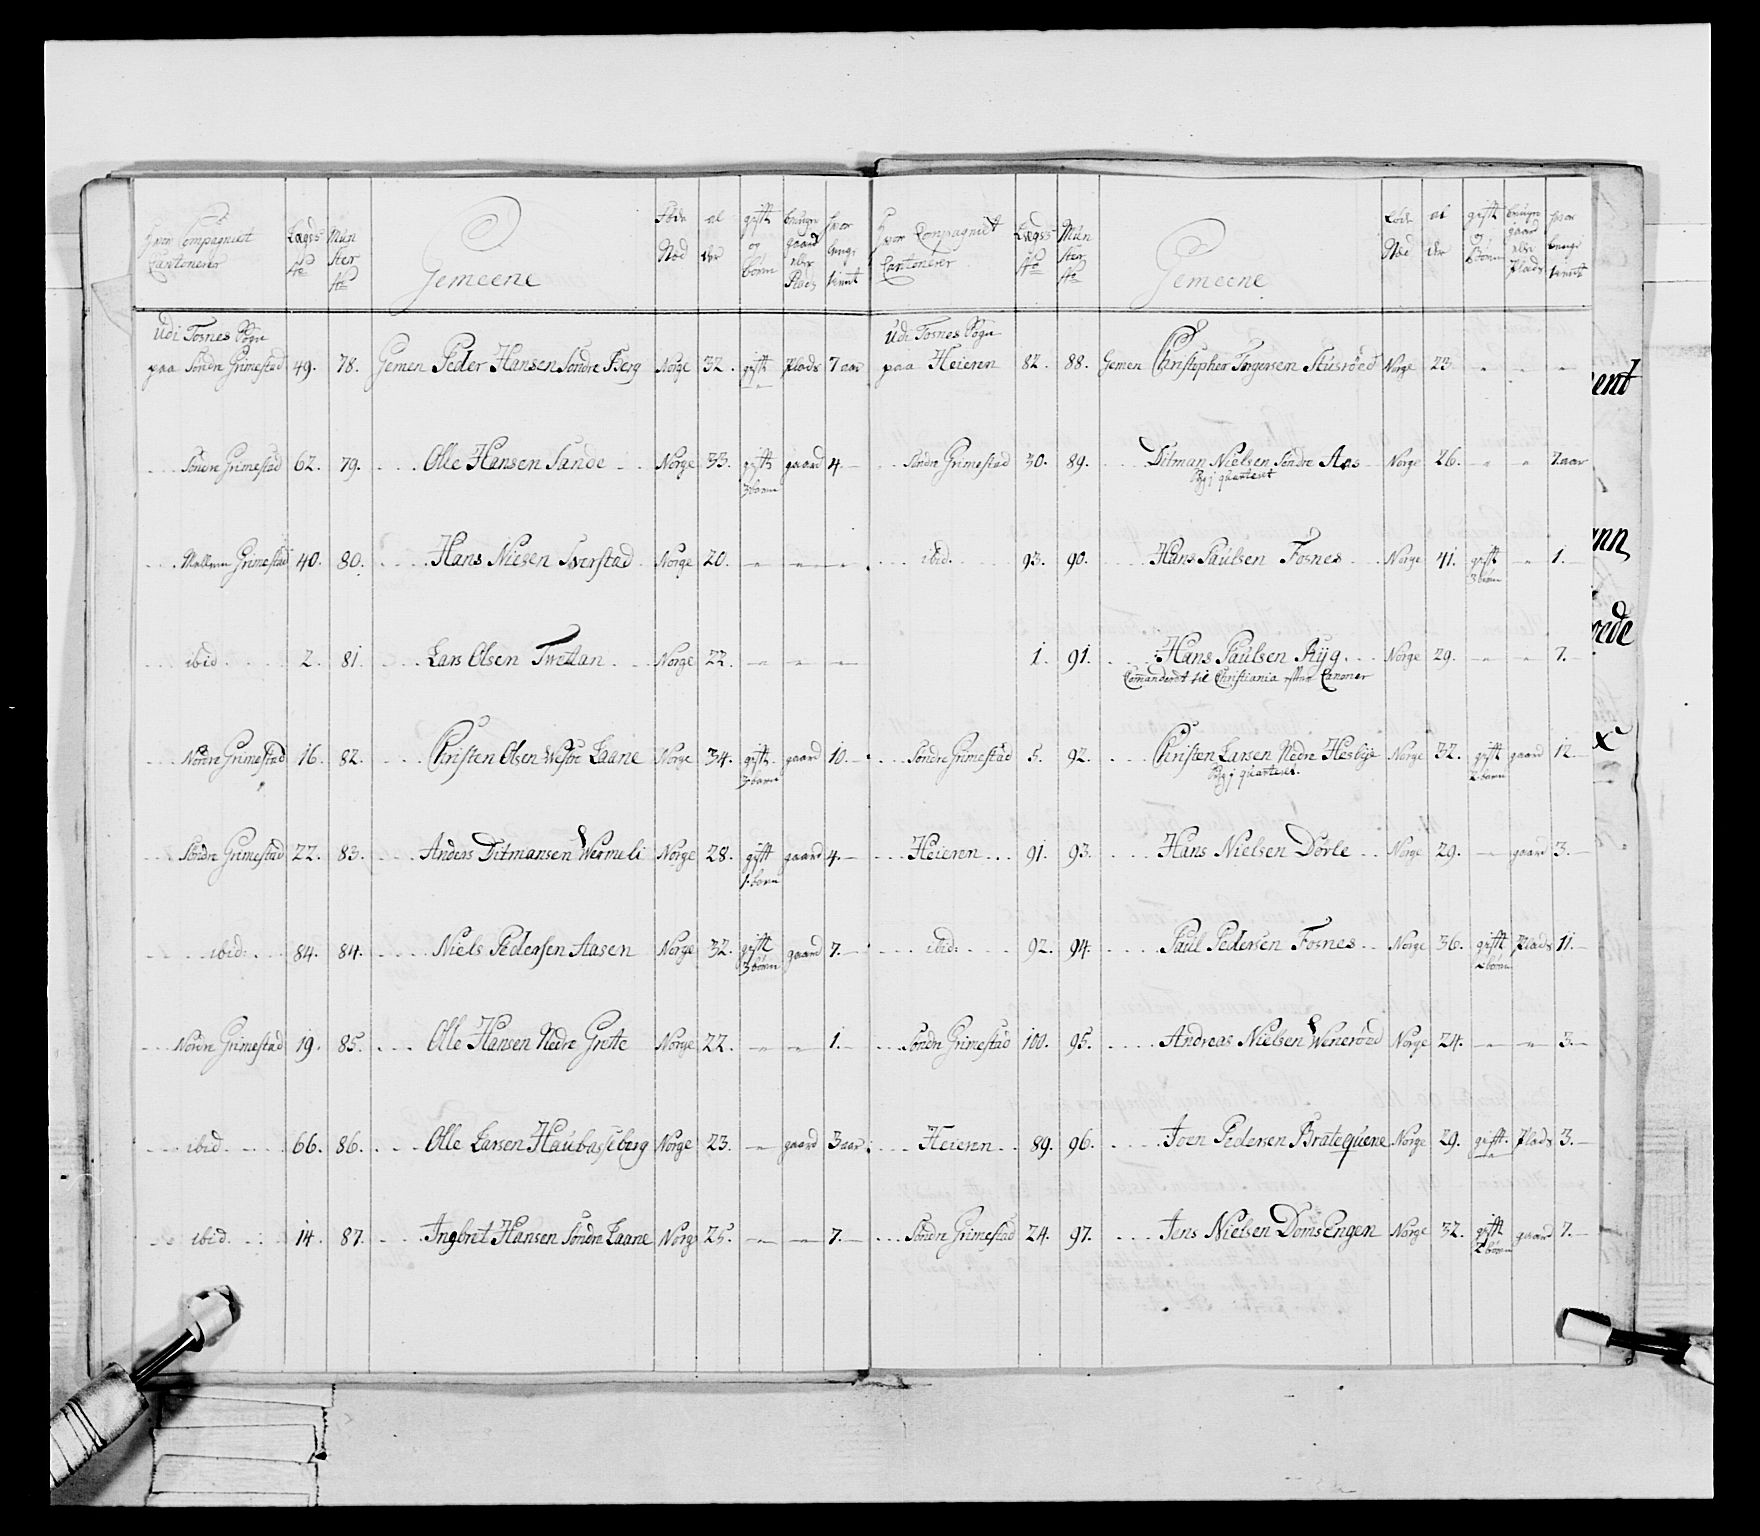 Hvor Compagniet Cantonerer | Lægs No | Mynster No | Gemeene | Føde Nød | alder | gift og børn | bruger gaard eller Plads | hvor længe tient
Udi Fosnes Sogn
paa Søndre Grimestad 49. 78. Gemen Peder Hansen Søndre Berg Norge 32. gift Plads 7 aar
Søndre Grimestad 62. 79. Olle Hansen Sande Norge 33. gift 3 børn gaard 4.
Mellem Grimestad 40. 80. Hans Niesen Sverstad Norge 20. - - -
ibid. 2. 81. Lars Olsen Tvettan Norge 22. - - -
Nordre Grimestad 16. 82. Christen Olsen Westre Laane Norge 34. gift 3 børn gaard 10.
Søndre Grimestad 22. 83. Anders Ditmansen Wermeli Norge 28. gift 1. børn gaard 4.
ibid: 84. 84. Niels Pedersen Aasen Norge 32. gift 3 børn gaard 7.
Nordre Grimestad 19. 85. Olle Hansen Nedre Grette Norge 22. - - 1.
ibid. 66. 86. Olle Larsen Haubasseberg Norge 23. - gaard 3 aar
ibid. 14. 87. Ingbret Hansen Søndre Laane Norge 25. - - 7.
Hvor Compagniet Cantonerer | Lægs No | Mynster No | Gemeene | Føde Nød | alder | gift og Børn | bruger gaar eller Plads | hvor længe tient
Udi Fosnes Sogn
paa Heieren 82. 88. Gemen Christopher Torgersen Stusrød Norge 23. - - -
Søndre Grimestad 30. 89. Ditman Nielsen Søndre Aas Norge 26. - - 7. aar
Syg j quarteret
ibid. 93. 90. Hans Paulsen Fosnes Norge 41. gift 3 børn - 1.
1. 91. Hans Paulsen Ryg Norge 29. - - 7.
Comanderet til Christiania efter Canoner
Søndre Grimestad 5. 92. Christen Larsen Nedre Hesbye Norge 32. gift 2 børn gaard 12.
Syg j quarteret.
Heieren 91. 93. Hans Nielsen Dørle Norge 29. - gaard 3.
ibid: 92. 94. Paul Pedersen Fosnes Norge 36. gift 2 børn Plads 11.
Søndre Grimestad 100. 95. Andreas Nielsen Wenerød Norge 24. - - 3.
Heieren 89. 96. Joen Pedersen Bratequene Norge 29. gift. Plads 3.
Søndre Grimestad 24. 97. Jens Nielsen DomsEngen Norge 32. gift 2 børn gaard 7.